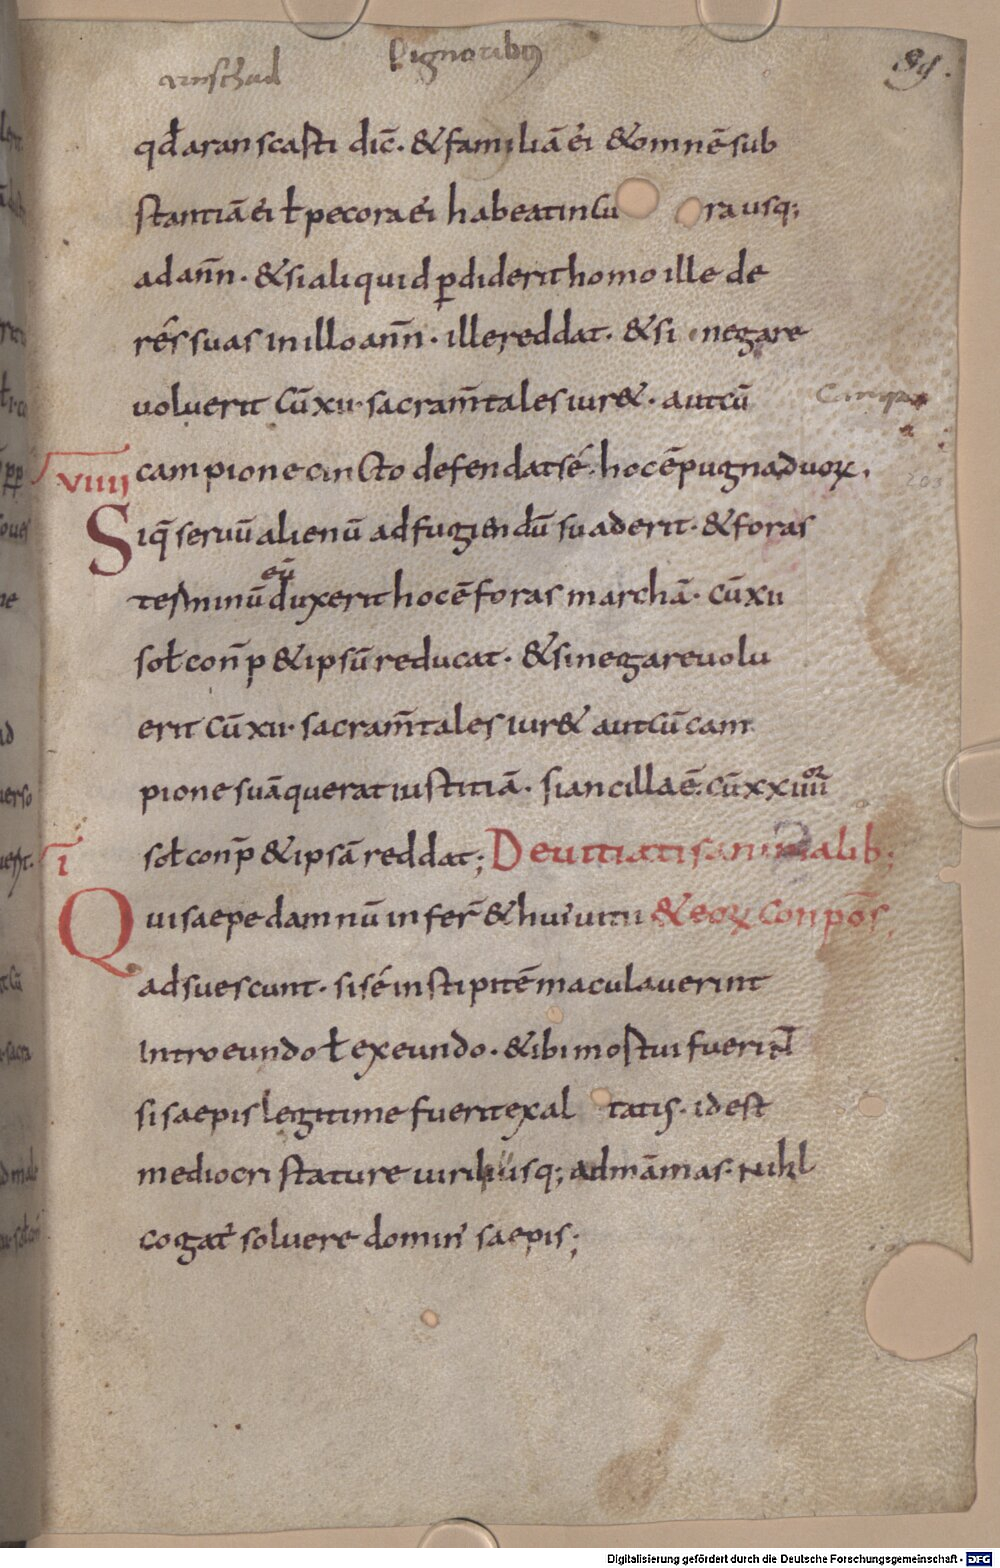 Pignoribus
89.
qđ aranscasti dic̄. & familiā ei & omnē sub
stantiā ei ł pecora ei habeat in cu ra usq;
ad an̄n. & si aliquid ꝑdiderit homo ille de
res suas in illo an̄n. ille reddat. & si negare
uoluerit cū xii. sacram̄tales iur&. aut cū
viiii campione cincto defendat sé. hoc ē pugna duoꝝ.
Siq̄ seruū alienū ad fugiendū suaderit. & foras
eū
terminū duxerit hoc ē foras marchā. cū xii
soł con̄p & ipsū reducat. & si negare uolu
erit cū xii. sacram̄tales iur& aut cū cam
pione suā querat iustitiā. si ancilla ē. cū xxiiii
or
soł con̄p & ipsā reddat; De uitiatis animalib;
i
Qui saepe damnū infer̄ & hui uitii & eoꝝ conpōs.
adsuescunt. si sé in stipitē maculauerint
Introeundo ł exeundo. & ibi mortui fuerint
si saepis legitime fuerit exal tatis. id est
mediocri stature uirili usq; ad māmas. Nihl
cogat soluere domin saepis;
Digitalisierung gefördert durch die Deutsche Forschungsgemeinschaft - DFG